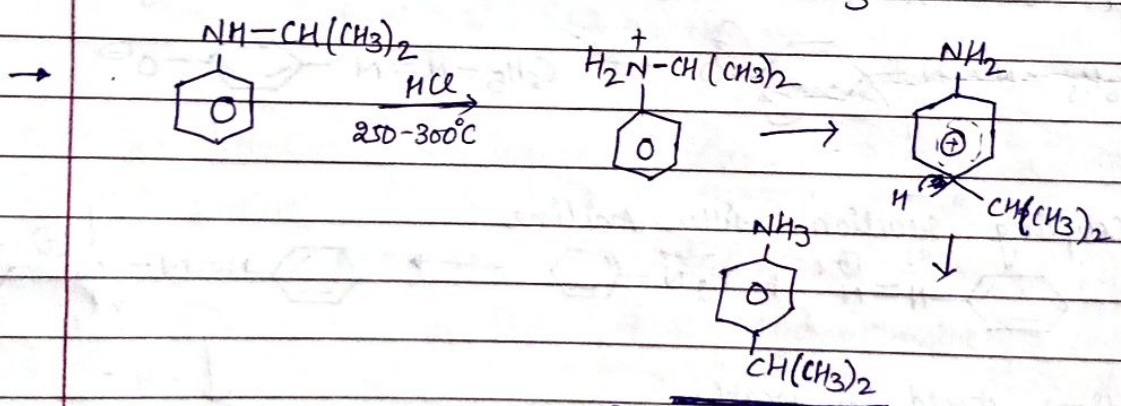 → NH-CH(CH3)2 HCl 250-300°C → H2N+-CH(CH3)2 → NH2 + H CH(CH3)2
↓
NH3
CH(CH3)2